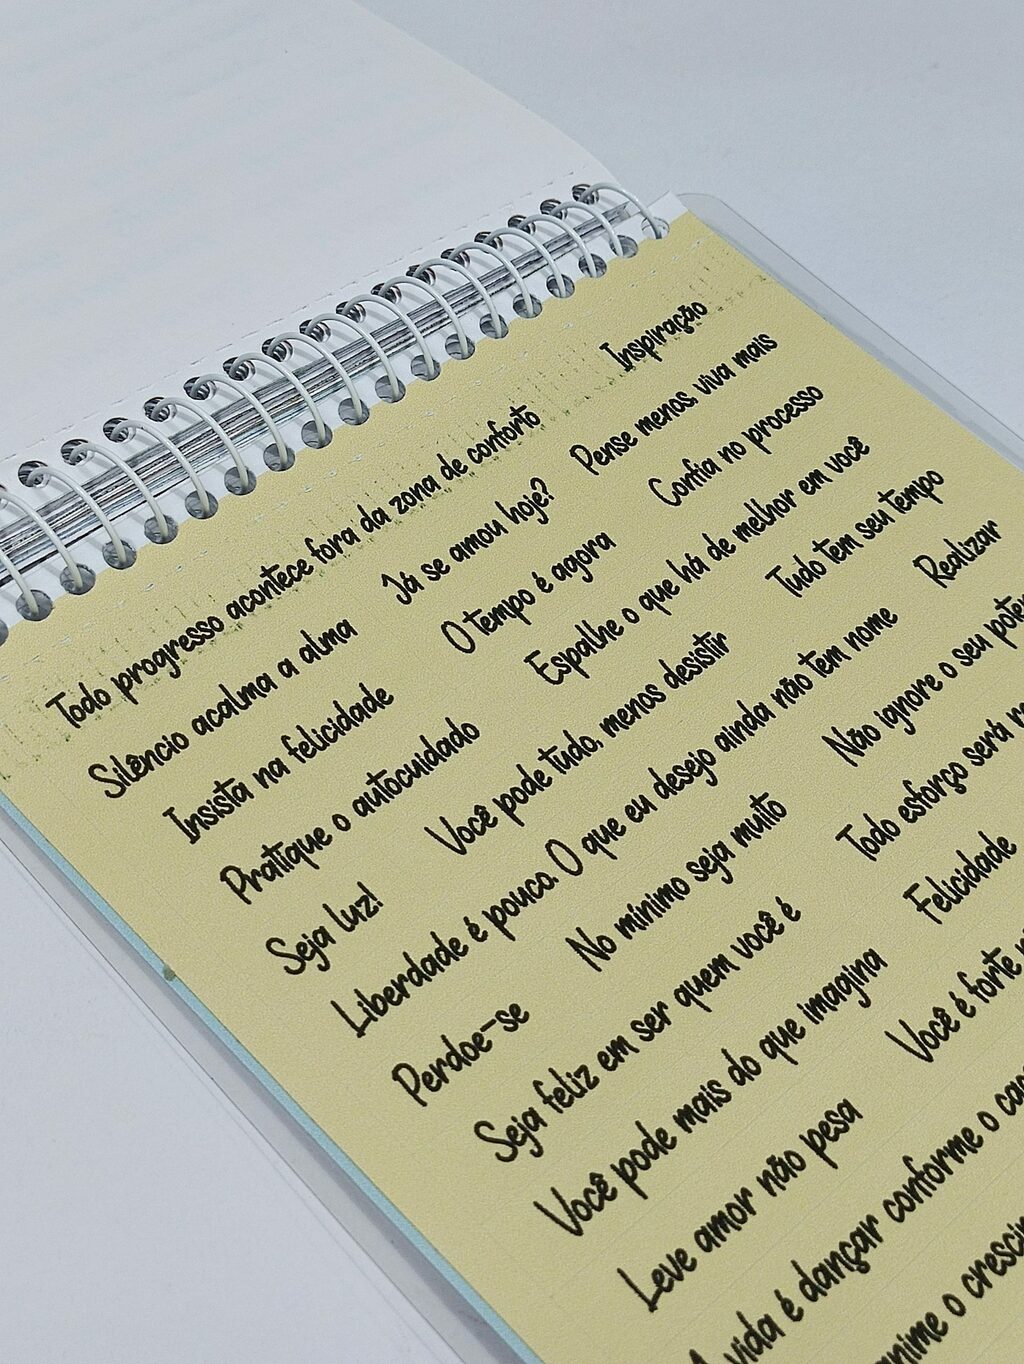 Todo progresso acontece fora da zona de conforto Inspiração
Silêncio acalma a alma Já se amou hoje? Pense menos, viva mais
Insista na felicidade O tempo é agora Confia no processo
Pratique o autocuidado Espalhe o que há de melhor em você
Seja luz! Você pode tudo, menos desistir Tudo tem seu tempo
Liberdade é pouco. O que eu desejo ainda não tem nome Realizar
Perdoe-se No mínimo seja muito Não ignore o seu
Seja feliz em ser quem você é Todo esforço será
Você pode mais do que imagina Felicidade
Leve amor não pesa Você é forte
vida é dançar conforme o
o